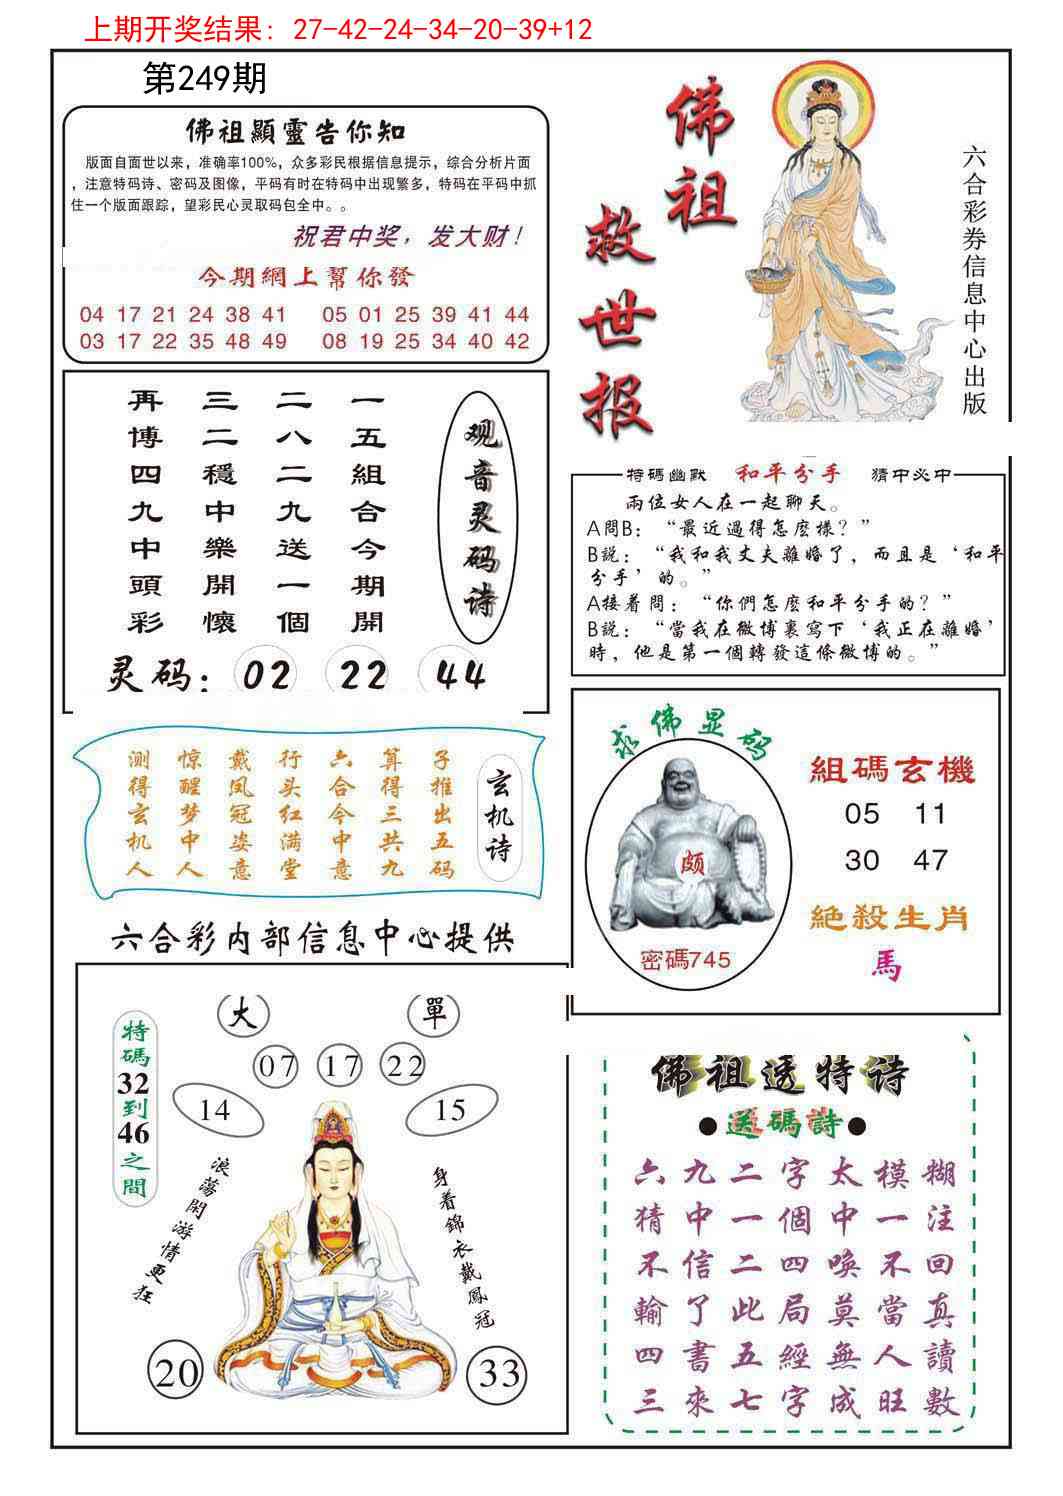 上期开奖结果：27-42-24-34-20-39+12
第249期
佛祖顯靈告你知
版面自面世以来，准确率100%，众多彩民根据信息提示，综合分析片面
，注意特码诗、密码及图像，平码有时在特码中出现繁多，特码在平码中抓
住一个版面跟踪，望彩民心灵取码包全中。。
祝君中奖，发大财！
今期網上幫你發
04 17 21 24 38 41 05 01 25 39 41 44
03 17 22 35 48 49 08 19 25 34 40 42
佛祖
救世报
六合彩券信息中心出版
观音灵码诗
一五組合今期開
二八二九送一個
三二穩中樂開懷
再博四九中頭彩
灵码：02 22 44
特碼幽默 和平分手 猜中必中
兩位女人在一起聊天。
A問B：“最近過得怎麽樣？”
B説：“我和我丈夫離婚了，而且是‘和平
分手’的。”
A接着問：“你們怎麽和平分手的？”
B説：“當我在微博裏寫下‘我正在離婚’
時，他是第一個轉發這條微博的。”
玄机诗
子推出五码
算得三共九
六合今中意
行头红满堂
戴凤冠姿意
惊醒梦中人
测得玄机人
求佛显码
颇
密碼745
組碼玄機
05 11
30 47
絶殺生肖
馬
六合彩内部信息中心提供
大 單
07 17 22
14 15
特碼32到46之間
浪蕩閑游情更狂
身着錦衣戴鳳冠
20 33
佛祖透特诗
●送碼詩●
六九二字太模糊
猜中一個中一注
不信二四唤不回
輸了此局莫當真
四書五經無人讀
三來七字成旺數